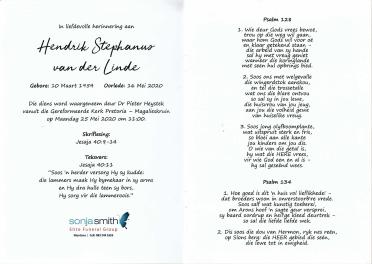 In liefdevolle herinnering aan
Hendrik Stephanus
van der Linde
Gebore: 10 Maart 1939 Oorlede: 16 Mei 2020
Die diens word waargeneem deur Dr Pieter Heystek
vanuit die Gereformeerde Kerk Pretoria - Magalieskruin
op Maandag 25 Mei 2020 om 11:00.
Skriflesing:
Jesaja 40:9-14
Teksvers:
Jesaja 40:11
"Soos 'n herder versorg Hy sy kudde:
die lammers maak Hy bymekaar in sy arms
en Hy dra hulle teen sy bors,
Hy sorg vir die lammerooie."
sonjasmith
Elite Funeral Group
Psalm 128
1. Wie dear Gods vrees bewet,
trou op die weg wil gaan,
waar hom Gods wil voor oë
en klaar getekend staan -
die arbeid van sy hande
sal hy met vreug geniet
wanneer die koringlande
met seën hul opbrings bied.
2. Soos ons met welgevalle
die wingerdstok aanskou,
en tel die trosse
wat ons die blare ontvou
so sal sy in jou lewe,
die huisvrou van jou jeug,
aan jou die volheid gewe
van huislike vreug.
3. Soos jong olyfboomplante,
wat uitspruit sterk en fris,
so bloei aan alle kante
jou kinders om jou dis.
O wie van die getal is,
hy wat die HERE vrees,
vir wie God een en al is -
hy sal geseënd wees.
Psalm 134
1. Hoe goed is dit 'n huis vol lieflikhede! -
dat broeders woon in onverstoorbre vrede.
Soos salf wat kunstig toeberei,
om Arons hoof 'n sagte geur versprei,
sy baard oordurp en heilge kleed deurtrek -
so sal die liefde liefde wek.
2. Dis soos die dou van Hermon, ryk nes reën,
op Sions berg: die HEER gebied die seën,
die lewe tot in ewigheid.